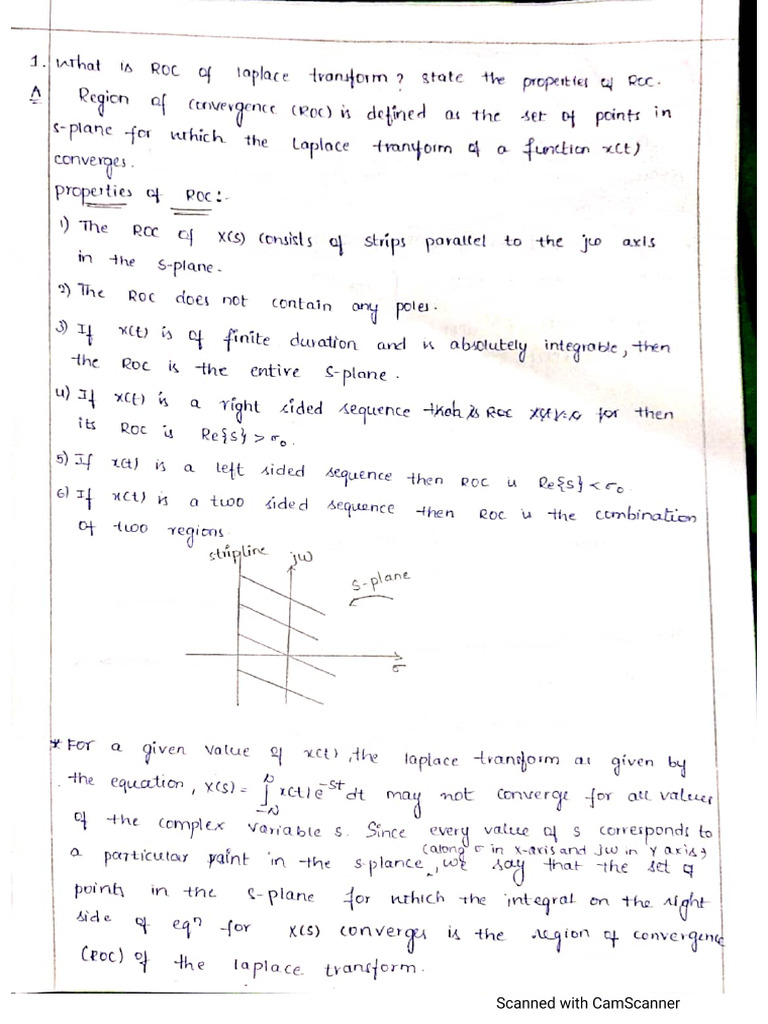 1. What is ROC of laplace transform? state the properties of ROC.
A Region of convergence (ROC) is defined as the set of points in
s-plane for which the Laplace tranyform of a function x(t)
converges.
properties of ROC:-
1) The ROC of X(s) consists of strips parallel to the jω axis
in the s-plane.
2) The ROC does not contain any poles.
3) If x(t) is of finite duration and is absolutely integrable, then
the ROC is the entire s-plane.
4) If x(t) is a right sided sequence ROC for then
its ROC is Re{s} > σ₀.
5) If x(t) is a left sided sequence then ROC is Re{s} < σ₀.
6) If x(t) is a two sided sequence then ROC is the combination
of two regions.
stripline jω
s-plane
σ
* For a given value of x(t), the laplace transform as given by
the equation, X(s) = ∫ x(t) e^-st dt may not converge for all values
of the complex variable s. Since every value of s corresponds to
(along σ in x-axis and jω in Y axis)
a particular point in the s-plance, we say that the set of
points in the s-plane for which the integral on the right
side of eqn for X(s) converges is the region of convergence
(ROC) of the laplace transform.
Scanned with CamScanner